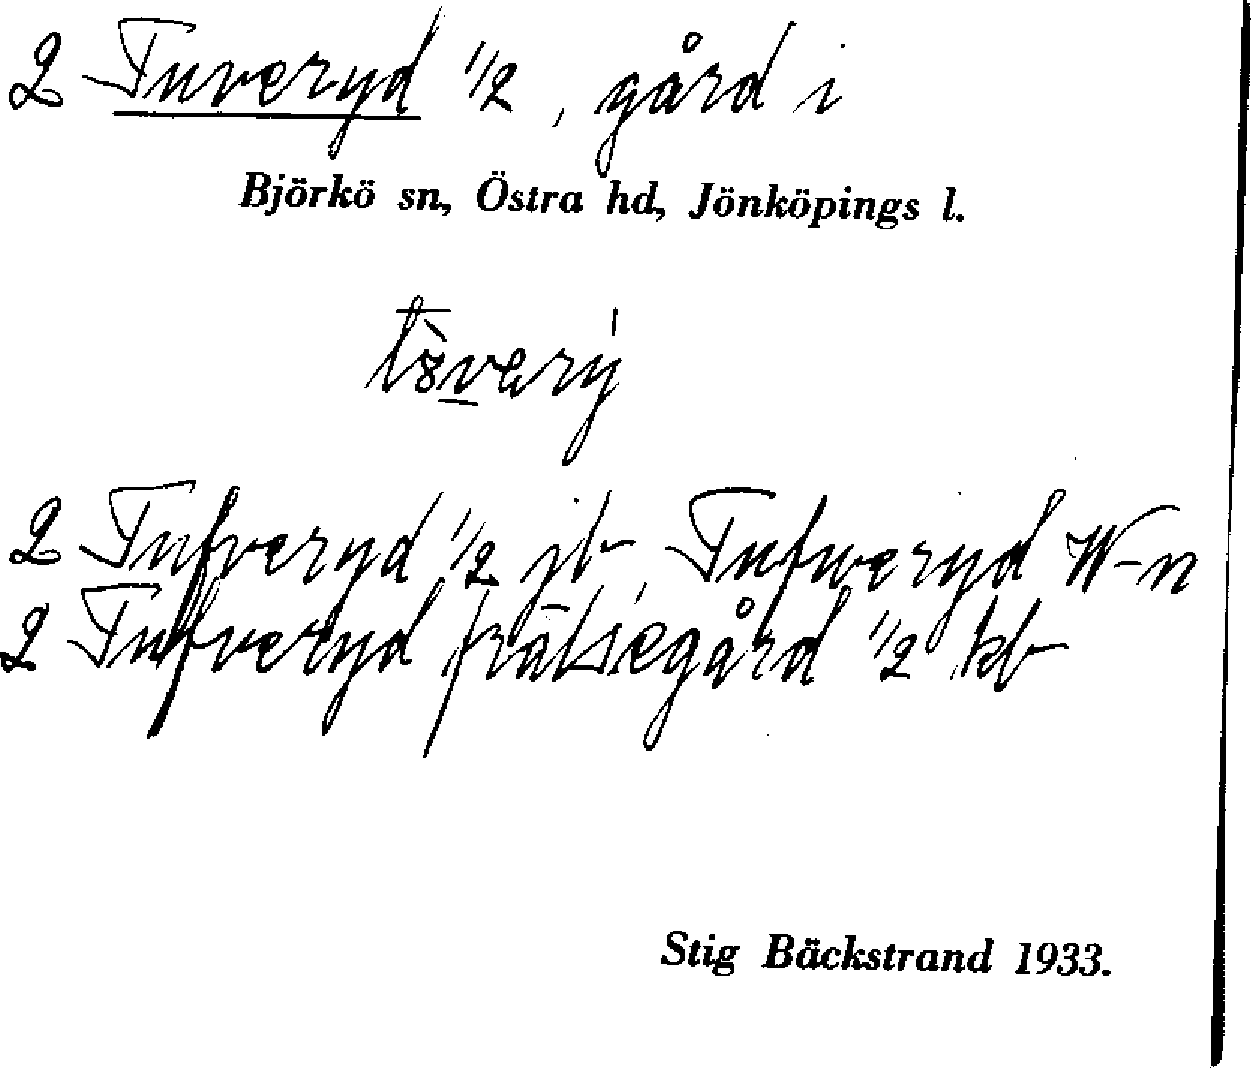 2 Tuveryd 1/2, gård i
Björkö sn, Östra hd, Jönköpings l.
2 Tufveryd 1/2 jb, Tufweryd W-n
2 Tufveryd frälsegård 1/2 kb
Stig Bäckstrand 1933.